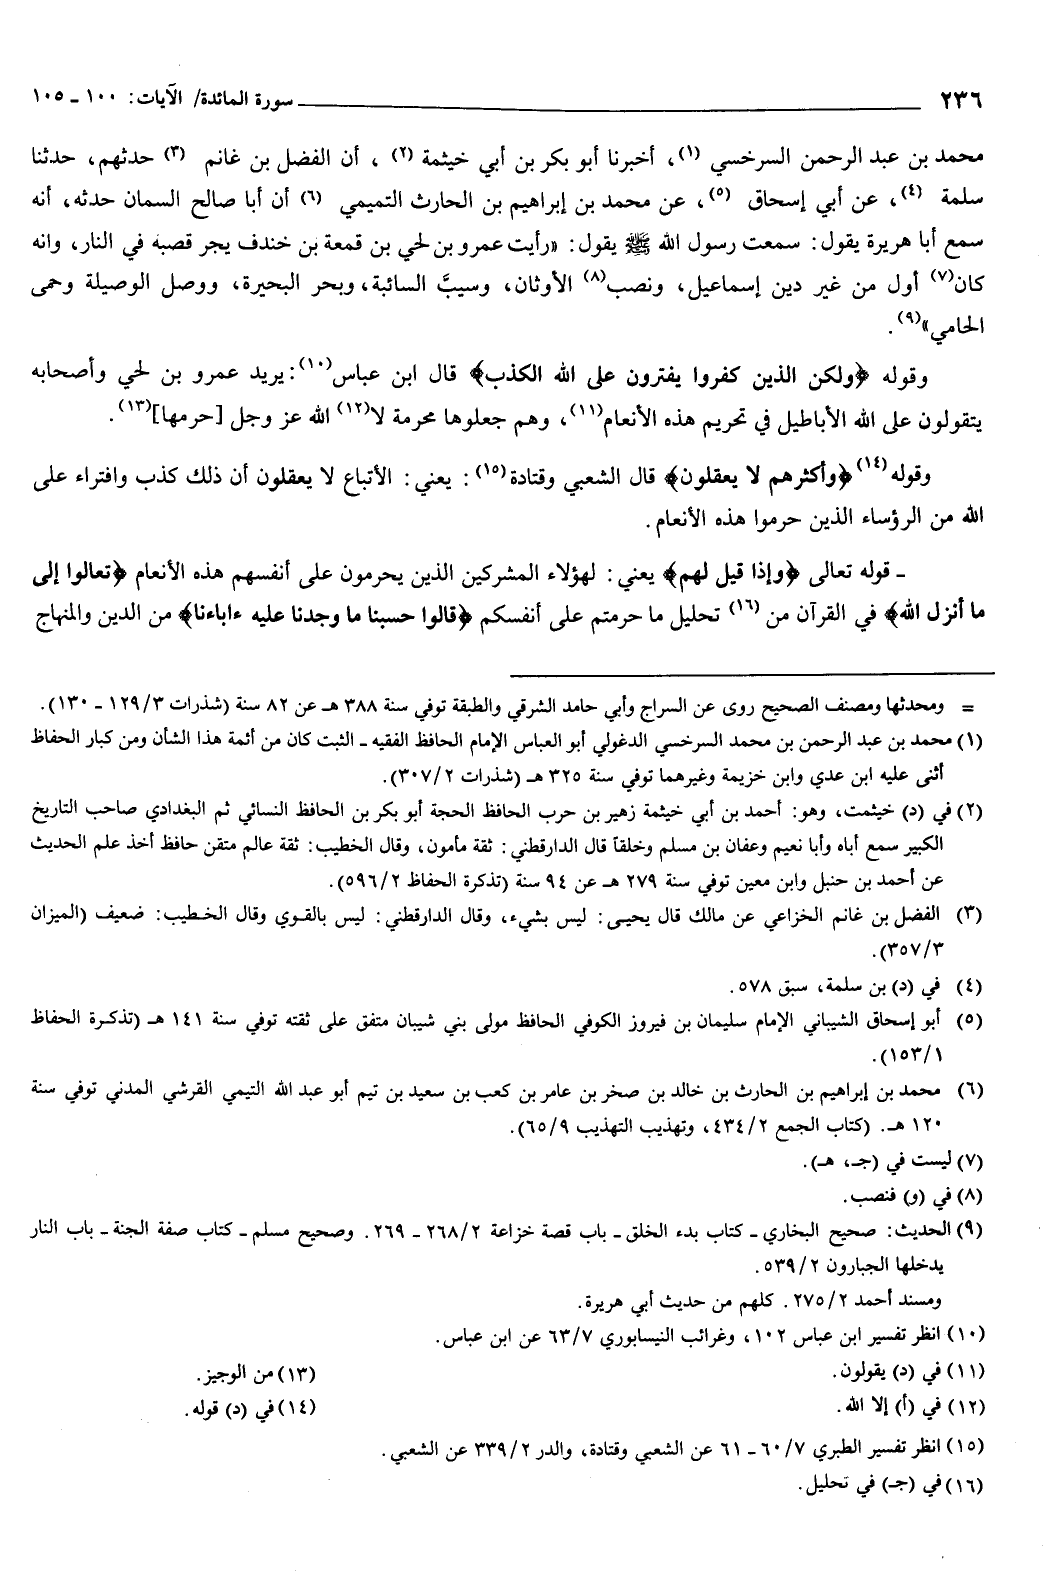 ٢٣٦ سورة المائدة/ الآيات: ١٠٠ ـ ١٠٥
محمد بن عبد الرحمن السرخسي (١)، أخبرنا أبو بكر بن أبي خيثمة (٢) ، أن الفضل بن غانم (٣) حدثهم، حدثنا
سلمة (٤)، عن أبي إسحاق (٥)، عن محمد بن إبراهيم بن الحارث التميمي (٦) أن أبا صالح السمان حدثه، أنه
سمع أبا هريرة يقول: سمعت رسول الله ﷺ يقول: «رأيت عمرو بن لحي بن قمعة بن خندف يجر قصبه في النار، وانه
كان(٧) أول من غير دين إسماعيل، ونصب(٨) الأوثان، وسيبَّ السائبة، وبحر البحيرة، ووصل الوصيلة وحمى
الحامي»(٩).
وقوله ﴿ولكن الذين كفروا يفترون على الله الكذب﴾ قال ابن عباس(١٠): يريد عمرو بن لحي وأصحابه
يتقولون على الله الأباطيل في تحريم هذه الأنعام(١١)، وهم جعلوها محرمة لا(١٢) الله عز وجل [حرمها](١٣).
وقوله(١٤) ﴿وأكثرهم لا يعقلون﴾ قال الشعبي وقتادة(١٥): يعني: الأتباع لا يعقلون أن ذلك كذب وافتراء على
الله من الرؤساء الذين حرموا هذه الأنعام.
ـ قوله تعالى ﴿وإذا قيل لهم﴾ يعني: لهؤلاء المشركين الذين يحرمون على أنفسهم هذه الأنعام ﴿تعالوا إلى
ما أنزل الله﴾ في القرآن من (١٦) تحليل ما حرمتم على أنفسكم ﴿قالوا حسبنا ما وجدنا عليه ءاباءنا﴾ من الدين والمنهاج
= ومحدثها ومصنف الصحيح روى عن السراج وأبي حامد الشرقي والطبقة توفي سنة ٣٨٨ هـ عن ٨٢ سنة (شذرات ١٢٩/٣ ـ ١٣٠).
(١) محمد بن عبد الرحمن بن محمد السرخسي الدغولي أبو العباس الإمام الحافظ الفقيه ـ الثبت كان من أئمة هذا الشأن ومن كبار الحفاظ
أثنى عليه ابن عدي وابن خزيمة وغيرهما توفي سنة ٣٢٥ هـ (شذرات ٣٠٧/٢).
(٢) في (د) خيثمت، وهو: أحمد بن أبي خيثمة زهير بن حرب الحافظ الحجة أبو بكر بن الحافظ النسائي ثم البغدادي صاحب التاريخ
الكبير سمع أباه وأبا نعيم وعفان بن مسلم وخلقاً قال الدارقطني: ثقة مأمون، وقال الخطيب: ثقة عالم متقن حافظ أخذ علم الحديث
عن أحمد بن حنبل وابن معين توفي سنة ٢٧٩ هـ عن ٩٤ سنة (تذكرة الحفاظ ٥٩٦/٢).
(٣) الفضل بن غانم الخزاعي عن مالك قال يحيى: ليس بشيء، وقال الدارقطني: ليس بالقوي وقال الخطيب: ضعيف (الميزان
٣٥٧/٣).
(٤) في (د) بن سلمة، سبق ٥٧٨.
(٥) أبو إسحاق الشيباني الإمام سليمان بن فيروز الكوفي الحافظ مولى بني شيبان متفق على ثقته توفي سنة ١٤١ هـ (تذكرة الحفاظ
١٥٣/١).
(٦) محمد بن إبراهيم بن الحارث بن خالد بن صخر بن عامر بن كعب بن سعيد بن تيم أبو عبد الله التيمي القرشي المدني توفي سنة
١٢٠ هـ. (كتاب الجمع ٤٣٤/٢، وتهذيب التهذيب ٦٥/٩).
(٧) ليست في (جـ، هـ).
(٨) في (و) فنصب.
(٩) الحديث: صحيح البخاري ـ كتاب بدء الخلق ـ باب قصة خزاعة ٢٦٨/٢ ـ ٢٦٩. وصحيح مسلم ـ كتاب صفة الجنة ـ باب النار
يدخلها الجبارون ٥٣٩/٢.
ومسند أحمد ٢٧٥/٢. كلهم من حديث أبي هريرة.
(١٠) انظر تفسير ابن عباس ١٠٢، وغرائب النيسابوري ٦٣/٧ عن ابن عباس.
(١١) في (د) يقولون. (١٣) من الوجيز.
(١٢) في (أ) إلا الله. (١٤) في (د) قوله.
(١٥) انظر تفسير الطبري ٦٠/٧ ـ ٦١ عن الشعبي وقتادة، والدر ٣٣٩/٢ عن الشعبي.
(١٦) في (جـ) في تحليل.